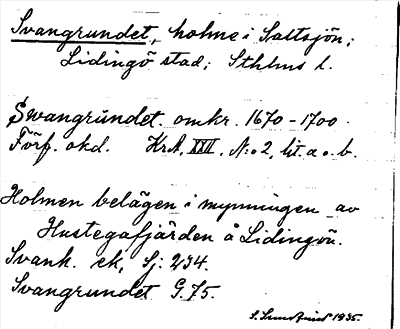 Svangrundet, holme i Saltsjön;
Lidingö stad; Sthlms l.
Swangrundet. omkr. 1670-1700.
Förf. okd. Kr.A. XXII. N:o 2, lit. a o. b.
Holmen belägen i mynningen av
Hustegafjärden å Lidingön.
Svank. ek, Sj: 234.
Svangrundet G. 75.
1935.